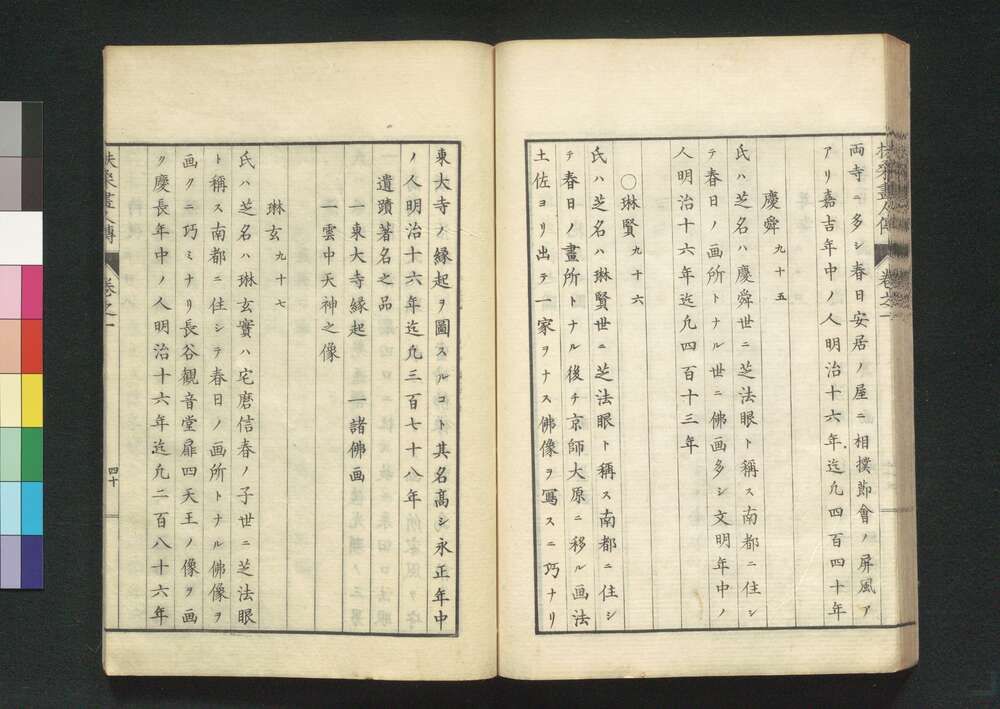 両寺ニ多シ春日安居ノ屋ニ相撲節會ノ屏風ア
アリ嘉吉年中ノ人明治十六年迄凡四百四十年
慶舜 九十五
氏ハ芝名ハ慶舜世ニ芝法眼ト稱ス南都ニ住シ
テ春日ノ画所トナル世ニ佛画多シ文明年中ノ
人明治十六年迄凡四百十三年
○琳賢 九十六
氏ハ芝名ハ琳賢世ニ芝法眼ト稱ス南都ニ住シ
テ春日ノ畫所トナル後チ京師大原ニ移ル画法
土佐ヨリ出テ一家ヲナス佛像ヲ寫スニ巧ナリ
東大寺ノ縁起ヲ圖スルコト其名高シ永正年中
ノ人明治十六年迄凡三百七十八年
遺蹟著名之品
一東大寺縁起 一諸佛画
一雲中天神之像
琳玄 九十七
氏ハ芝名ハ琳玄實ハ宅磨信春ノ子世ニ芝法眼
ト稱ス南都ニ住シテ春日ノ画所トナル佛像ヲ
画クニ巧ミナリ長谷観音堂扉四天王ノ像ヲ画
ク慶長年中ノ人明治十六年迄凡二百八十六年
扶桑畫人傳 卷之一 四十